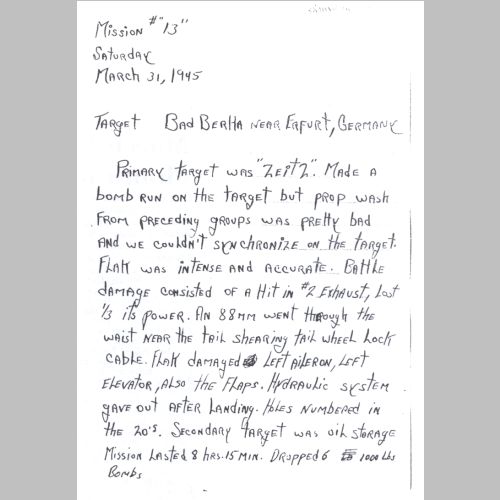 Mission # "13"
Saturday
March 31, 1945
Target Bad Berka near Erfurt, Germany
Primary target was "Zeitz". Made a
bomb run on the target but prop wash
from preceding groups was pretty bad
and we couldn't synchronize on the target.
Flak was intense and accurate. Battle
damage consisted of a hit in #2 exhaust, lost
1/3 its power. An 88mm went through the
waist near the tail shearing tail wheel lock
cable. Flak damaged left aileron, left
elevator, also the flaps. Hydraulic system
gave out after landing. Holes numbered in
the 20's. Secondary target was oil storage
Mission lasted 8 hrs. 15 min. Dropped 6 1000 lbs
Bombs